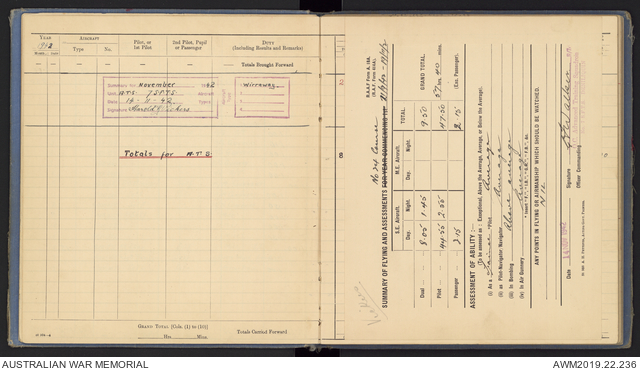 YEAR
1942
AIRCRAFT
Pilot, or
1st Pilot
2nd Pilot, Pupil
or Passenger
DUTY
(Including Results and Remarks)
Month
Date
Type
No.
— Totals Brought Forward
Summary for November 1942
Unit A.T.S. 7 S.F.T.S.
Date 14-11-42
Signature
Aircraft
Types
1. Wirraway
2.
3.
4.
Totals for A.T.S.
GRAND TOTAL [Cols. (1) to (10)]
Hrs. Mins.
Totals Carried Forward
No 24 Course
SUMMARY OF FLYING AND ASSESSMENTS FOR YEAR COMMENCING
S.E. Aircraft.
M.E. Aircraft.
TOTAL.
GRAND TOTAL.
Day.
Night.
Day.
Night.
Dual
8.05
1.45
9.50
57 hrs 40 mins.
Pilot
44.55
2.55
47.50
(Exc. Passenger).
Passenger
2.15
2.15
ASSESSMENT OF ABILITY :—
(To be assessed as : Exceptional, Above the Average, Average, or Below the Average).
(i) As a Pilot Average
(ii) as Pilot-Navigator/Navigator Average
(iii) In Bombing Above average
(iv) In Air Gunnery Average
ANY POINTS IN FLYING OR AIRMANSHIP WHICH SHOULD BE WATCHED.
NIL
Date 14 NOV 1942
Signature
Officer Commanding
AUSTRALIAN WAR MEMORIAL
AWM2019.22.236